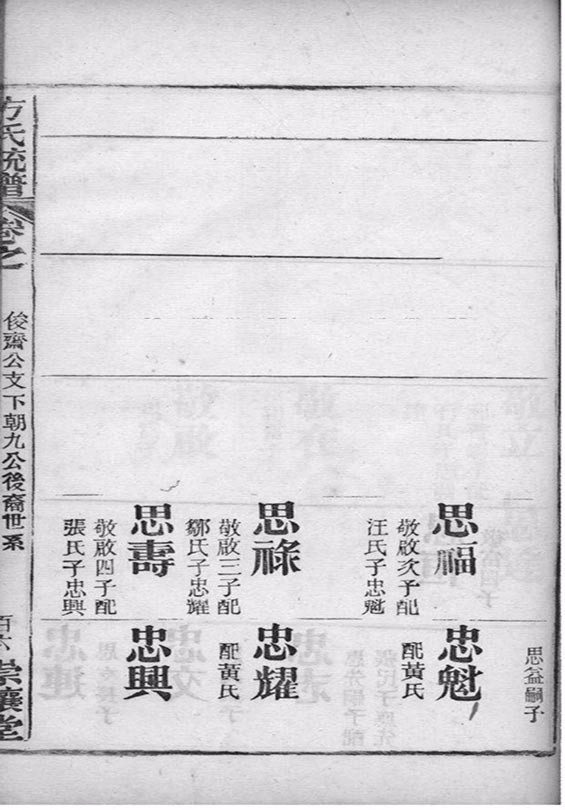 思益嗣子
思福
敬啟次子配
汪氏子忠魁
思祿
敬啟三子配
鄒氏子忠耀
思壽
敬啟四子配
張氏子忠興
忠魁
配黃氏
忠耀
配黃氏
忠興
方氏統譜
卷之
俊齋公支下朝九公後裔世系
百六
崇讓堂